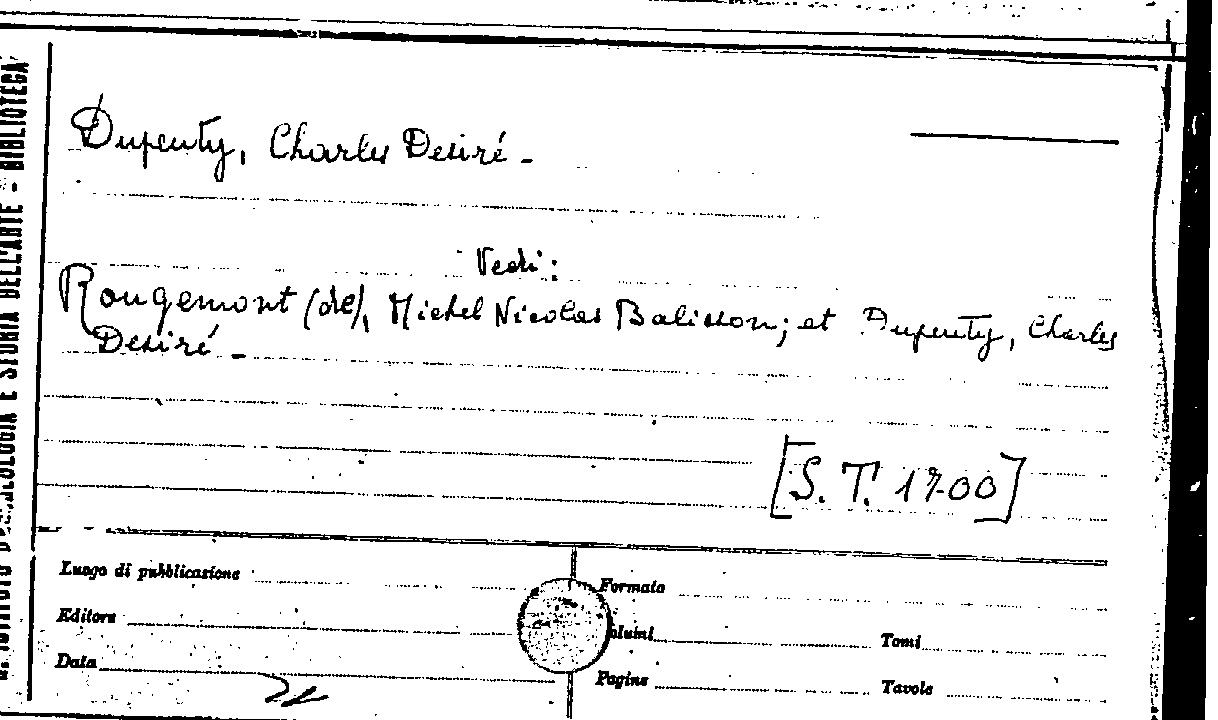 Dupeuty, Charles Desiré -
Vedi:
Rougemont (de), Michel Nicolas Balisson; et Dupeuty, Charles
Desiré -
[S. T. 1700]
Luogo di pubblicazione
Formato
Editore
Volumi
Tomi
Data
Pagine
Tavole
E STORIA DELL'ARTE - BIBLIOTECA